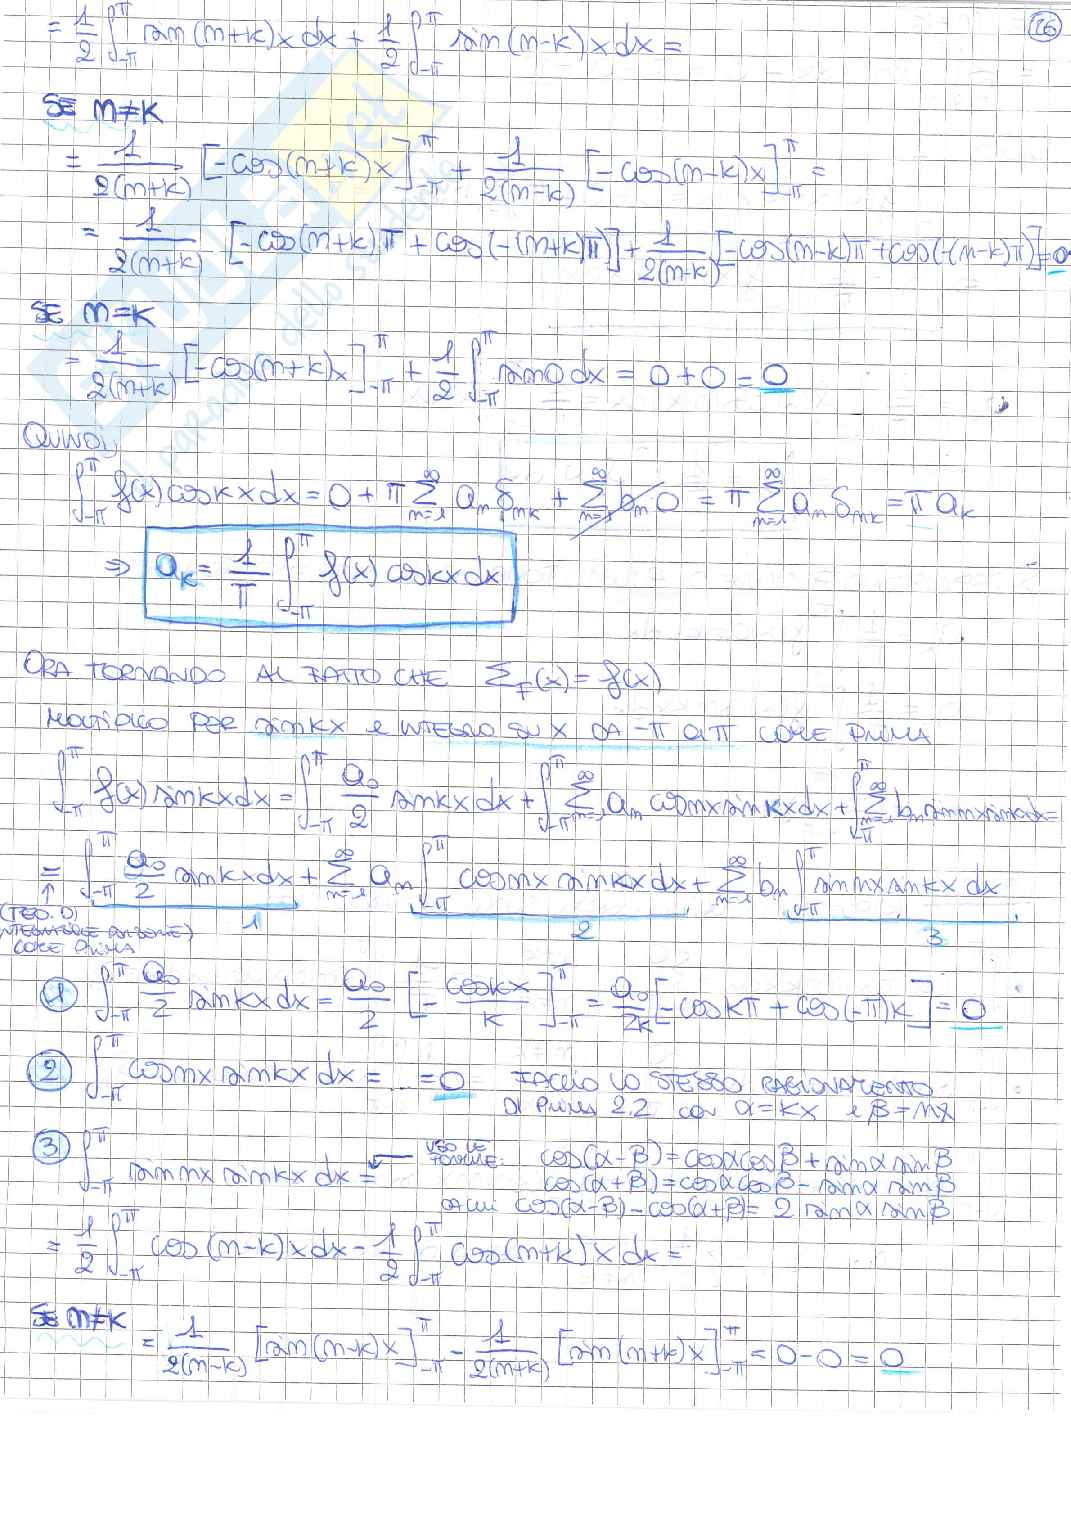 16
= 1/2 ∫_{-π}^{π} sin(n+k)x dx + 1/2 ∫_{-π}^{π} sin(n-k)x dx =
SE n≠k
= 1/(2(n+k)) [-cos(n+k)x]_{-π}^{π} + 1/(2(n-k)) [-cos(n-k)x]_{-π}^{π} =
= 1/(2(n+k)) [-cos(n+k)π + cos(-(n+k)π)] + 1/(2(n-k)) [-cos(n-k)π + cos(-(n-k)π)] = 0
SE n=k
= 1/(2(n+k)) [-cos(n+k)x]_{-π}^{π} + 1/2 ∫_{-π}^{π} sin0 dx = 0+0 = 0
QUINDI
∫_{-π}^{π} f(x) coskx dx = 0 + π Σ_{n=1}^{∞} a_n δ_{nk} + Σ_{n=1}^{∞} b_n 0 = π Σ_{n=1}^{∞} a_n δ_{nk} = π a_k
⇒ a_k = 1/π ∫_{-π}^{π} f(x) coskx dx
ORA TORNANDO AL FATTO CHE Σ_F(x) = f(x)
MOLTIPLICO PER sinkx e INTEGRO SU X DA -π a π COME PRIMA
∫_{-π}^{π} f(x) sinkx dx = ∫_{-π}^{π} a_0/2 sinkx dx + ∫_{-π}^{π} Σ_{n=1}^{∞} a_n cosnx sinkx dx + ∫_{-π}^{π} Σ_{n=1}^{∞} b_n sinnx sinkx dx =
= ∫_{-π}^{π} a_0/2 sinkx dx + Σ_{n=1}^{∞} a_n ∫_{-π}^{π} cosnx sinkx dx + Σ_{n=1}^{∞} b_n ∫_{-π}^{π} sinnx sinkx dx
↑ 1 2 3
(TEO. DI
COME PRIMA
1 ∫_{-π}^{π} a_0/2 sinkx dx = a_0/2 [-coskx/k]_{-π}^{π} = a_0/2k [-coskπ + cos(-π)k] = 0
2 ∫_{-π}^{π} cosnx sinkx dx = ... = 0 FACCIO LO STESSO RAGIONAMENTO
DI PRIMA 2.2 con α=kx e β=nx
3 ∫_{-π}^{π} sinnx sinkx dx = ← USO LE FORMULE: cos(α-β) = cosαcosβ + sinα sinβ
cos(α+β) = cosαcosβ - sinα sinβ
da cui cos(α-β) - cos(α+β) = 2 sinα sinβ
= 1/2 ∫_{-π}^{π} cos(n-k)x dx - 1/2 ∫_{-π}^{π} cos(n+k)x dx =
SE n≠k = 1/(2(n-k)) [sin(n-k)x]_{-π}^{π} - 1/(2(n+k)) [sin(n+k)x]_{-π}^{π} = 0-0 = 0